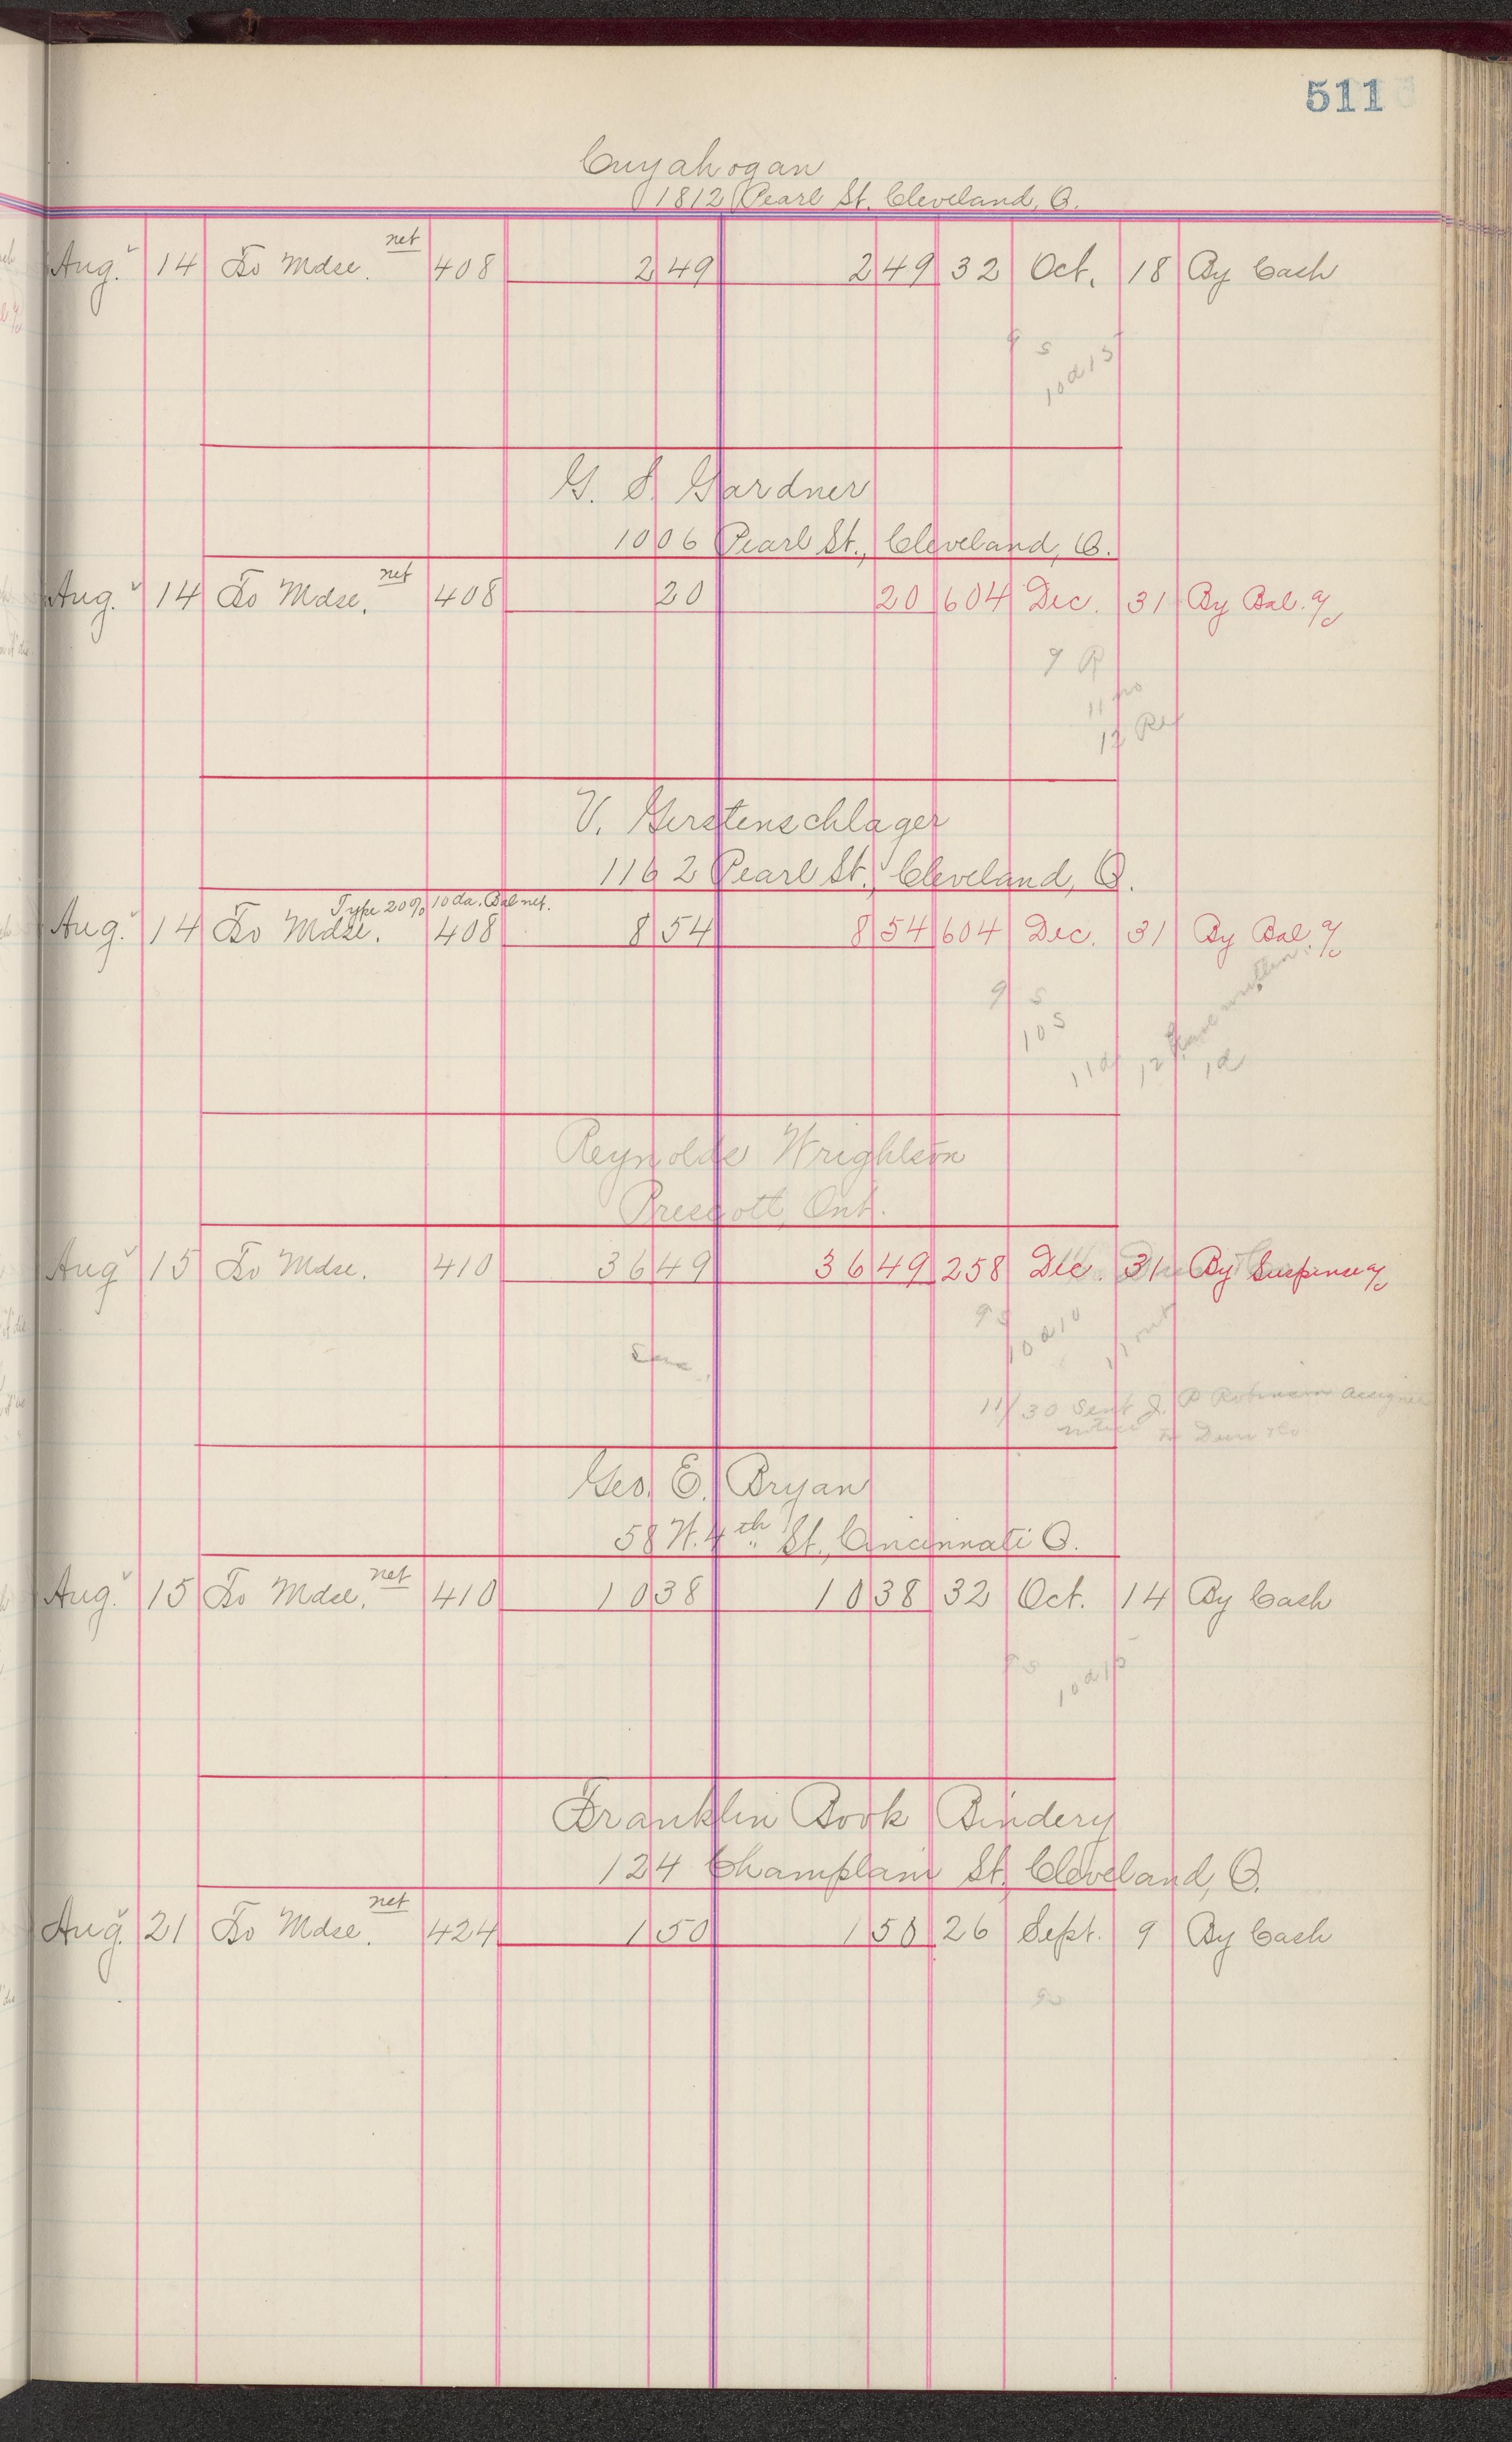 511
Cuyahogan
1812 Pearl St. Cleveland, O.
net
Aug. 14 To Mdse. 408 2 49 2 49 32 Oct. 18 By Cash
9 s
10 d 15
G. S. Gardner
1006 Pearl St., Cleveland, O.
net
Aug. 14 To Mdse. 408 20 20 604 Dec. 31 By Bal. a/c
9 R
11
12
V. Gerstenschlager
1162 Pearl St., Cleveland, O.
Type 20% 10 da. Bal net.
Aug. 14 To Mdse. 408 8 54 8 54 604 Dec. 31 By Bal. a/c
9 s
10 s
11 d
12 written
1 d
Reynolds Wrightson
Prescott, Ont.
Aug 15 To Mdse. 410 36 49 36 49 258 Dec. 31 By Suspense a/c
9 s
10 d 10
11
11/30 Sent J. P Robinson Assignee
notice Dun & Co
Geo. E. Bryan
58 W. 4th St., Cincinnati O.
net
Aug. 15 To Mdse. 410 10 38 10 38 32 Oct. 14 By Cash
9 s
10 d 15
Franklin Book Bindery
124 Champlain St. Cleveland, O.
net
Aug. 21 To Mdse. 424 1 50 1 50 26 Sept. 9 By Cash